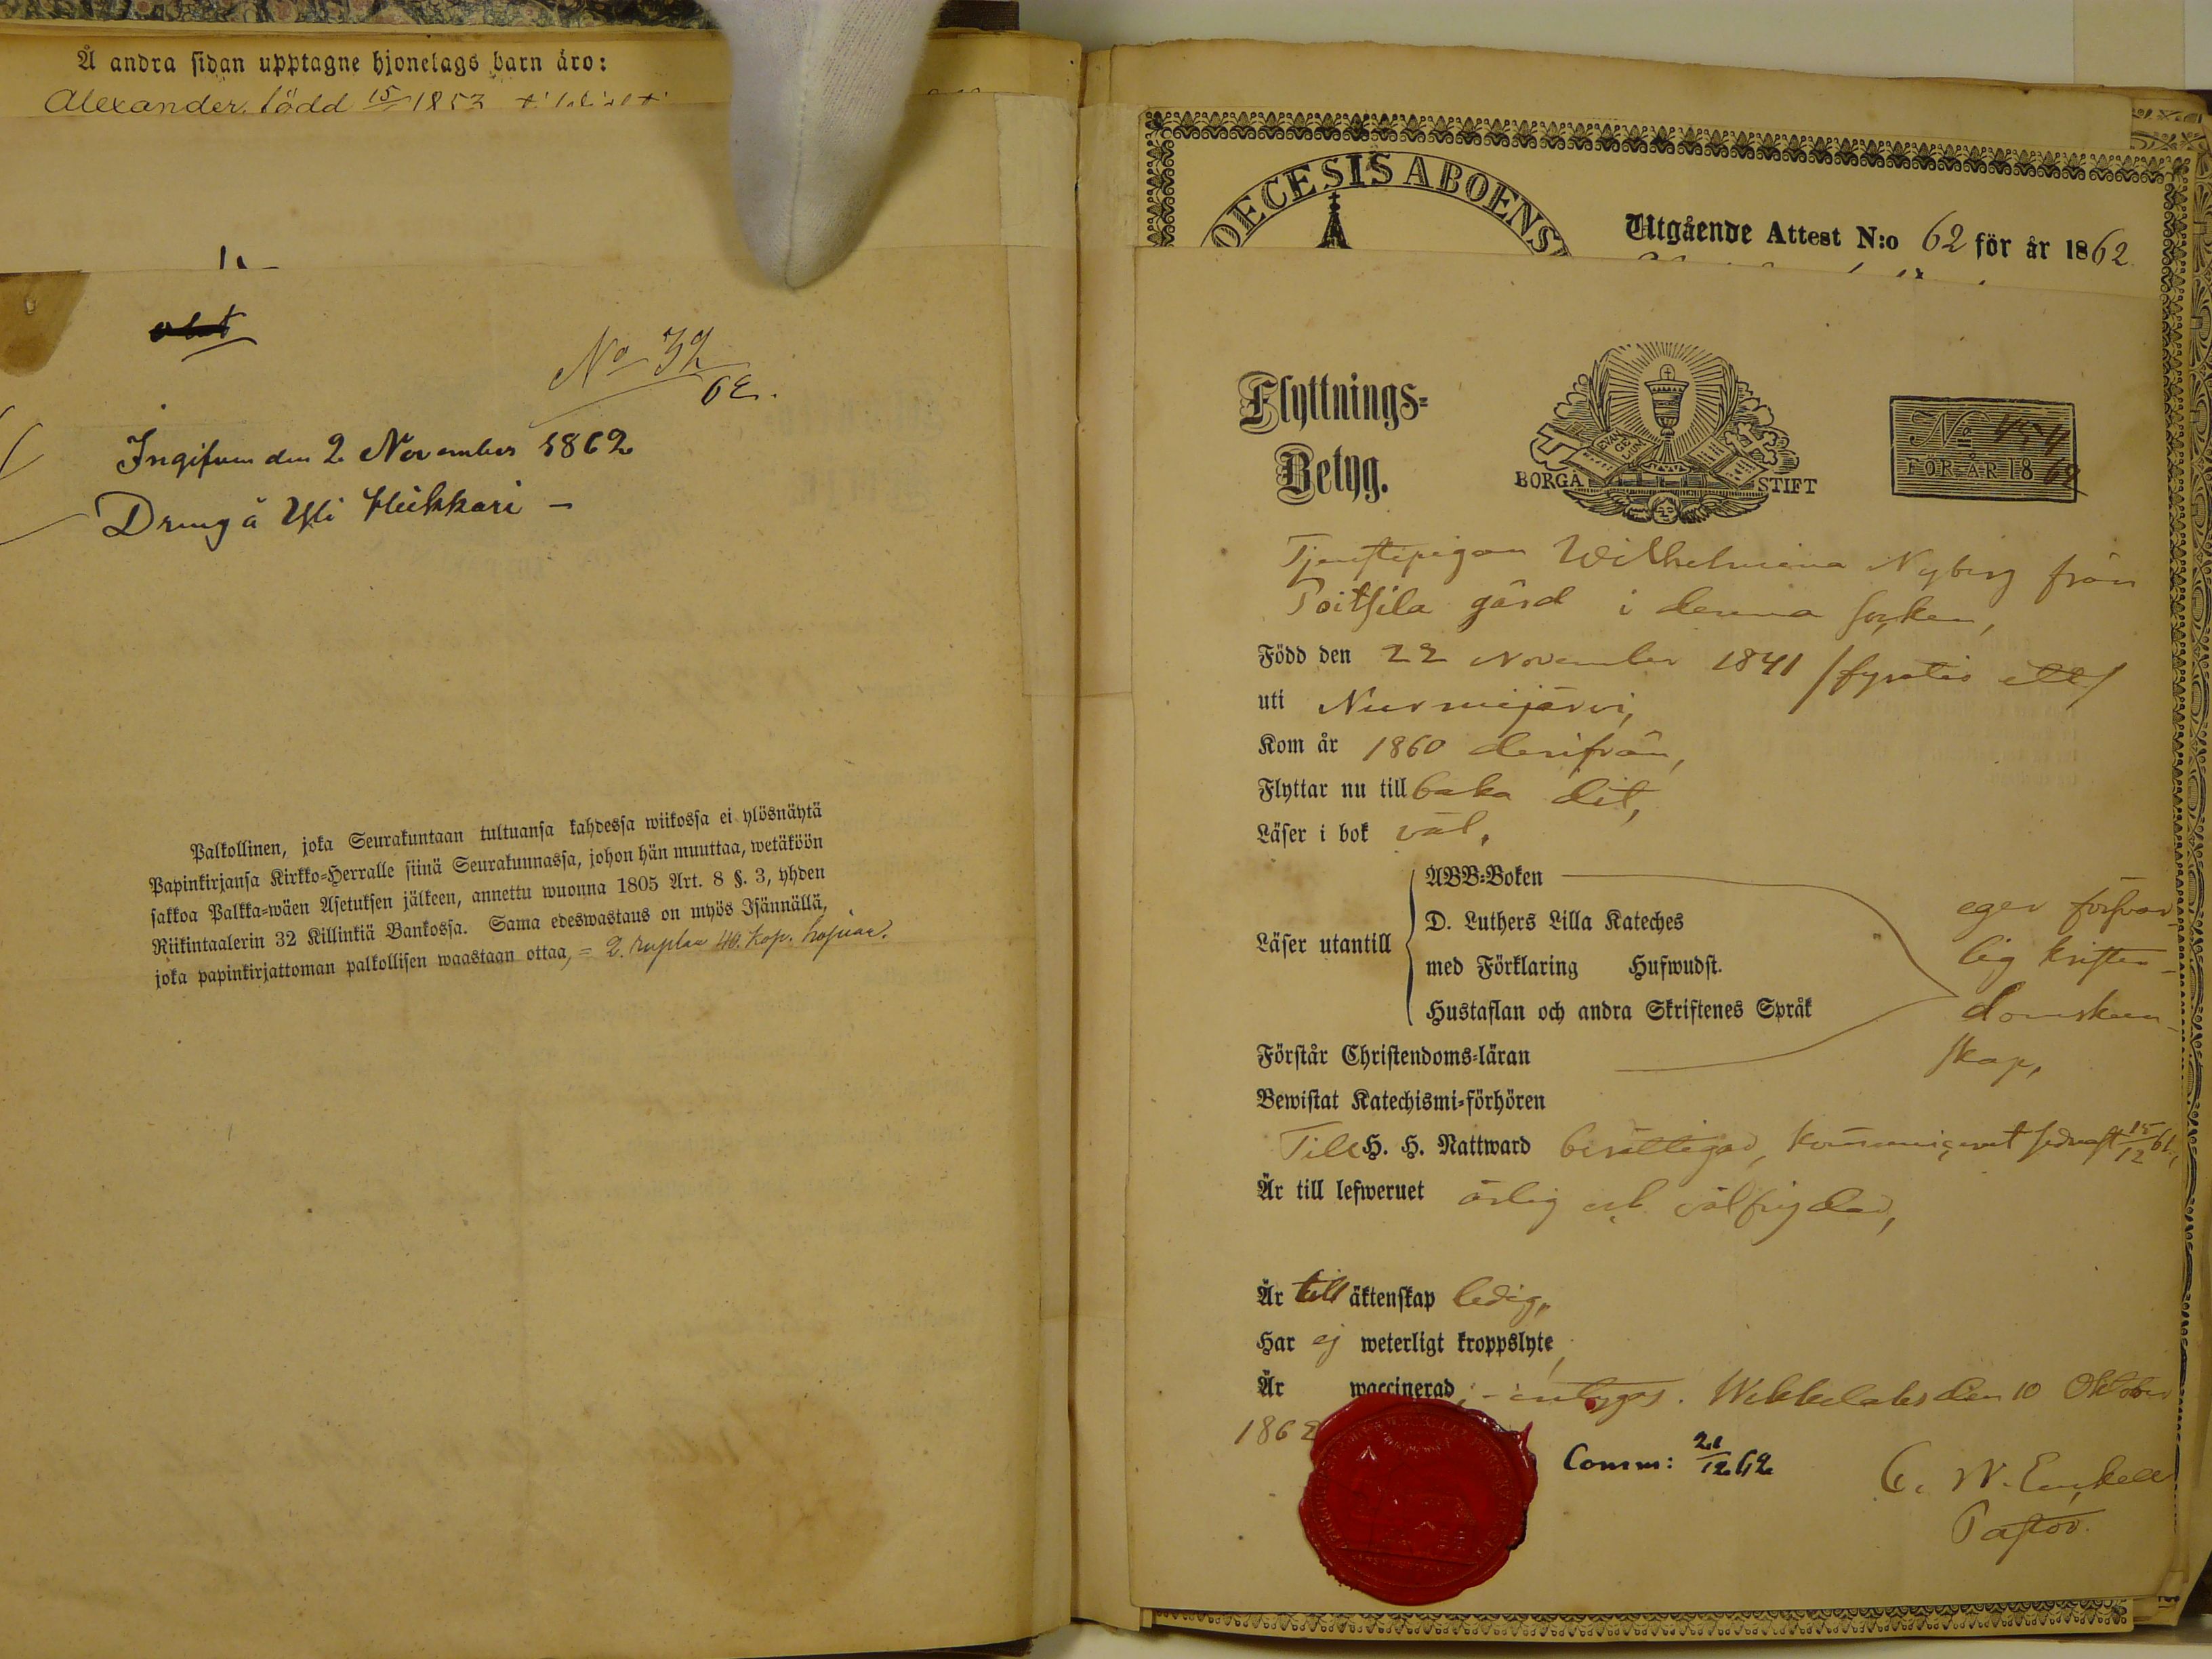 Å andra sidan upptagne hjonelags barn äro:
Alexander, född 15/ 1853
No 32
62.
Ingifven den 2 November 1862
Dreng å Yli Heikkari –
Palkollinen, joka Seurakuntaan tultuansa kahdessa wiikossa ei ylösnäytä
Papinkirjansa Kirkko=Herralle siinä Seurakunnassa, johon hän muuttaa, wetäköön
sakkoa Palkka=wäen Asetuksen jälkeen, annettu wuonna 1805 Art. 8 §. 3, yhden
Riikintaalerin 32 Killinkiä Bankossa. Sama edeswastaus on myös Isännällä,
joka papinkirjattoman palkollisen waastaan ottaa, = 2. ruplaa 40. kop. hopiaa.
OECESIS ABOENS
Utgående Attest N:o 62 för år 1862
Flyttnings=
Betyg.
EVAN
GE
LIUM
BORGÅ STIFT
No 454
FÖR ÅR 1862
Tjenstepigan Wilhelmina Nyberg från
Poitsila gård i denna socken,
Född den 22 November 1841 /fyratio ett/
uti Nurmijärvi,
Kom år 1860 derifrån,
Flyttar nu tillbaka dit,
Läser i bok väl,
Läser utantill
ABB=Boken
D. Luthers Lilla Kateches
med Förklaring Hufwudst.
Hustaflan och andra Skriftenes Språk
eger försvar
lig kristen-
domskun-
skap,
Förstår Christendoms=läran
Bewistat Katechismi=förhören
Till H. H. Nattward berättigad, kommunicerat sednast 15/12 61,
Är till lefwernet ärlig och välfrejdad,
Är till äktenskap ledig,
Har ej weterligt kroppslyte,
Är waccinerad; – intygas. Wekkelaks den 10 Oktober
1862
Comm: 21/12 62
C. W. Enckell
Pastor.